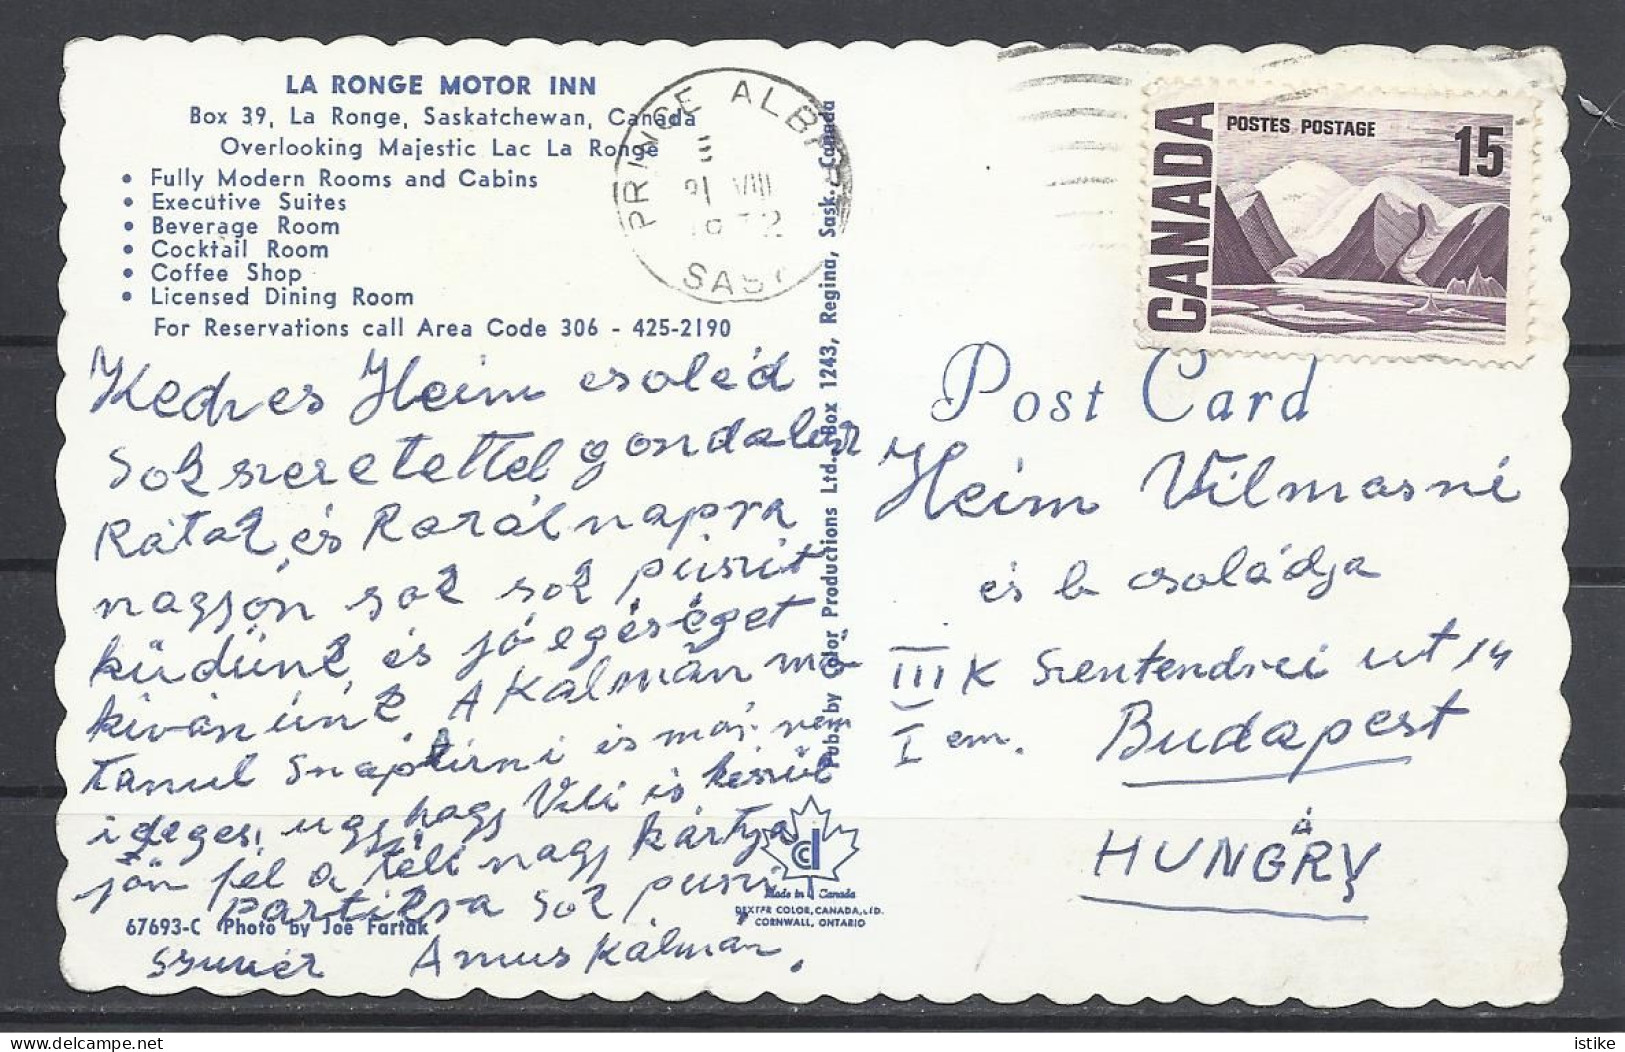 LA RONGE MOTOR INN
Box 39, La Ronge, Saskatchewan, Canada
Overlooking Majestic Lac La Ronge
• Fully Modern Rooms and Cabins
• Executive Suites
• Beverage Room
• Cocktail Room
• Coffee Shop
• Licensed Dining Room
For Reservations call Area Code 306 - 425-2190
PRINCE ALBERT
VIII
SASK
CANADA
POSTES POSTAGE
15
Kedves Heim család
Sok szeretettel gondolunk
Rátok, és Karol napra
nagyon sok sok puszit
küdünk, és jó egéséget
kivánunk. A Kálmán má
tanul is már nem
ideges, ugy hogy Vili is készül
jön fel a téli nagy kártya
partikra sok puszi
Amus Kálmán.
67693-C Photo by Joe Fartak
Pub. by Color Productions Ltd. Box 1243, Regina, Sask. Canada
Made in Canada
DEXTER COLOR, CANADA, LTD.
CORNWALL, ONTARIO
Post Card
Heim Vilmosné
és b családja
III K Szentendrei ut 14
I em. Budapest
HUNGRY
istike